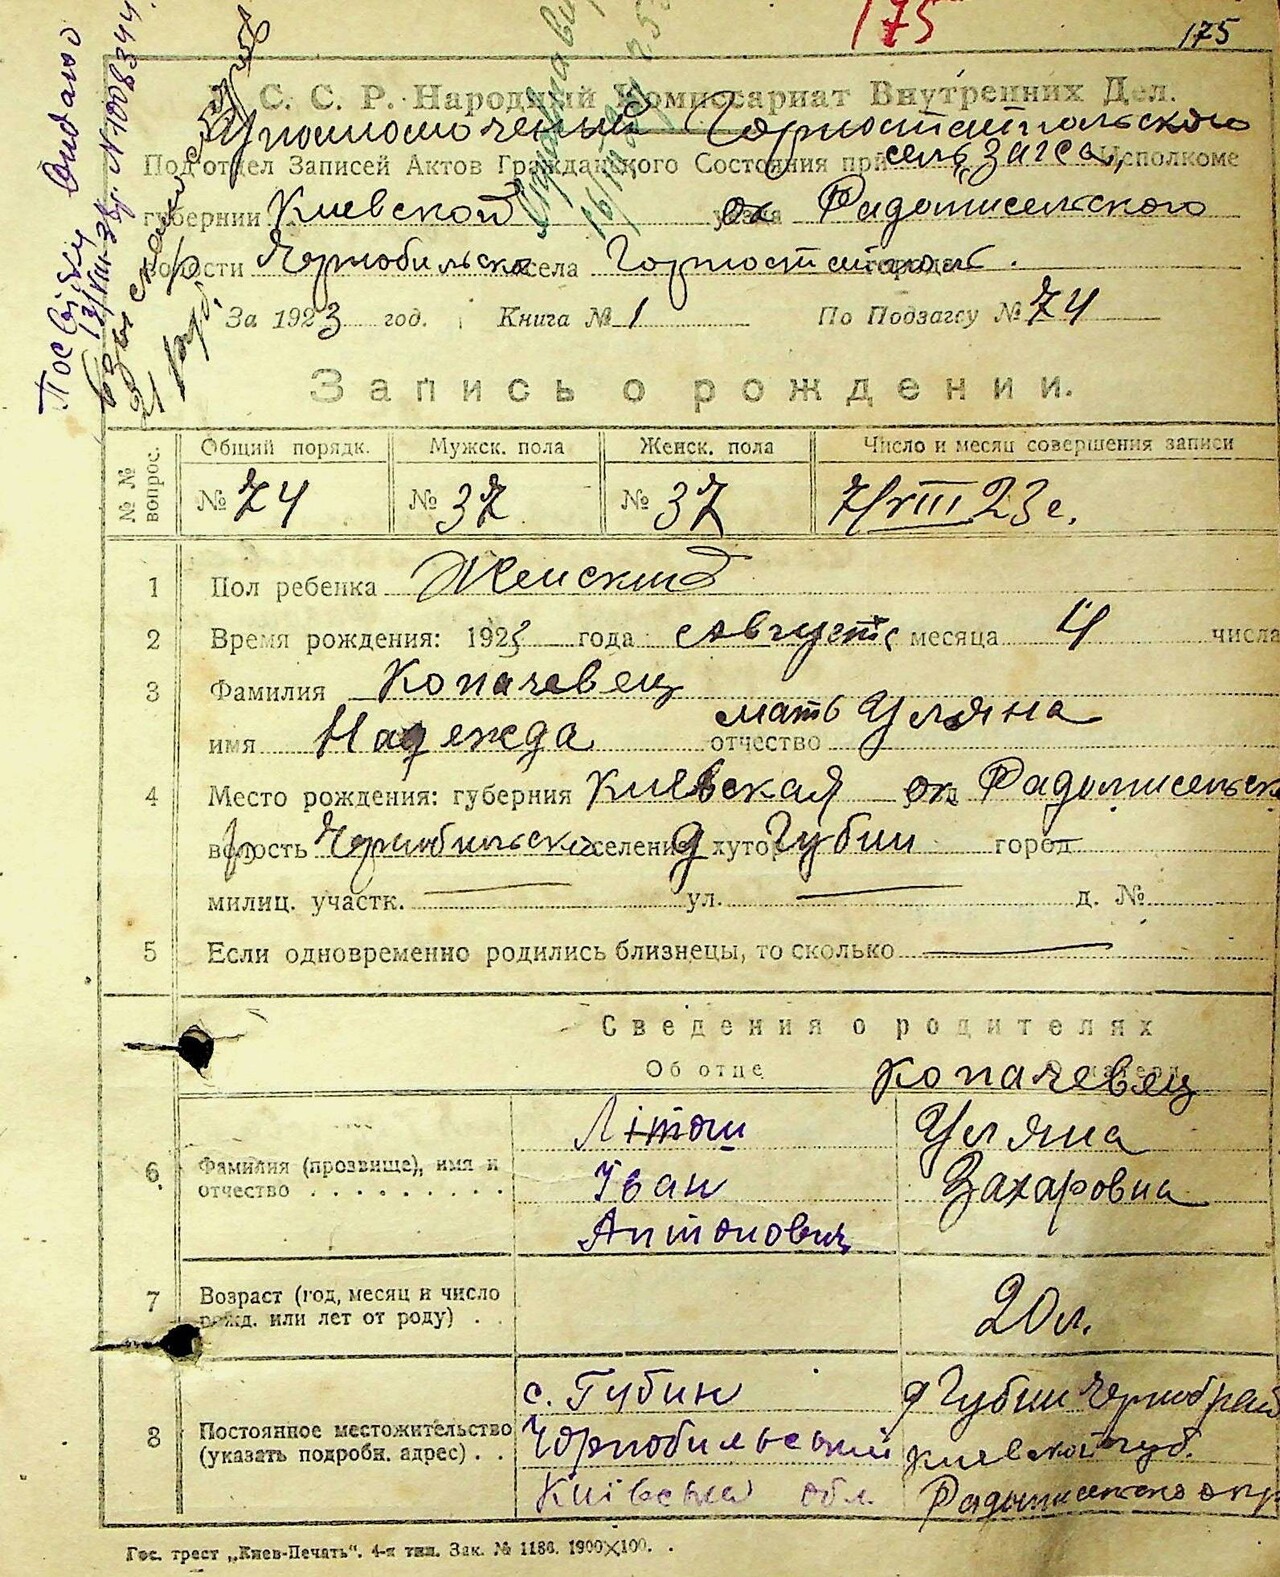 175
175
С. С. Р. Народный Комиссариат Внутренних Дел.
Уполномоченый Горностайпольского
Под'отдел Записей Актов Гражданского Состояния при сель "Загса" Исполкоме
губернии Киевской ок Радомисельского
волости Чернобильско села Горностайполь.
За 1923 год. Книга № 1 По Подзагсу № 74
Запись о рождении.
№№ вопрос.
Общий порядк. Мужск. пола Женск. пола Число и месяц совершения записи
№ 74 № 37 № 37 7/VIII 23 г.
1 Пол ребенка Женский
2 Время рождения: 1923 года Августа месяца 4 числа
3 Фамилия Копачевец
мать Уляна
имя Надежда отчество
4 Место рождения: губерния Киевская ок Радомисельск
волость Чернобильско селение д хутор Губин город
милиц. участк. ул. д. №
5 Если одновременно родились близнецы, то сколько
Сведения о родителях
Об отце Копачевец
6. Фамилия (прозвище), имя и отчество
Літош Уляна
Іван Захаровна
Антонович
7 Возраст (год, месяц и число рожд. или лет от роду) 20 л.
8 Постоянное местожительство (указать подробн. адрес)
с. Губин д Губин Чернобрай
Чорнобильський Киевской губ.
Київська обл. Радомисельско окр
Гос. трест „Киев-Печать". 4-я тип. Зак. № 1186. 1900×100.